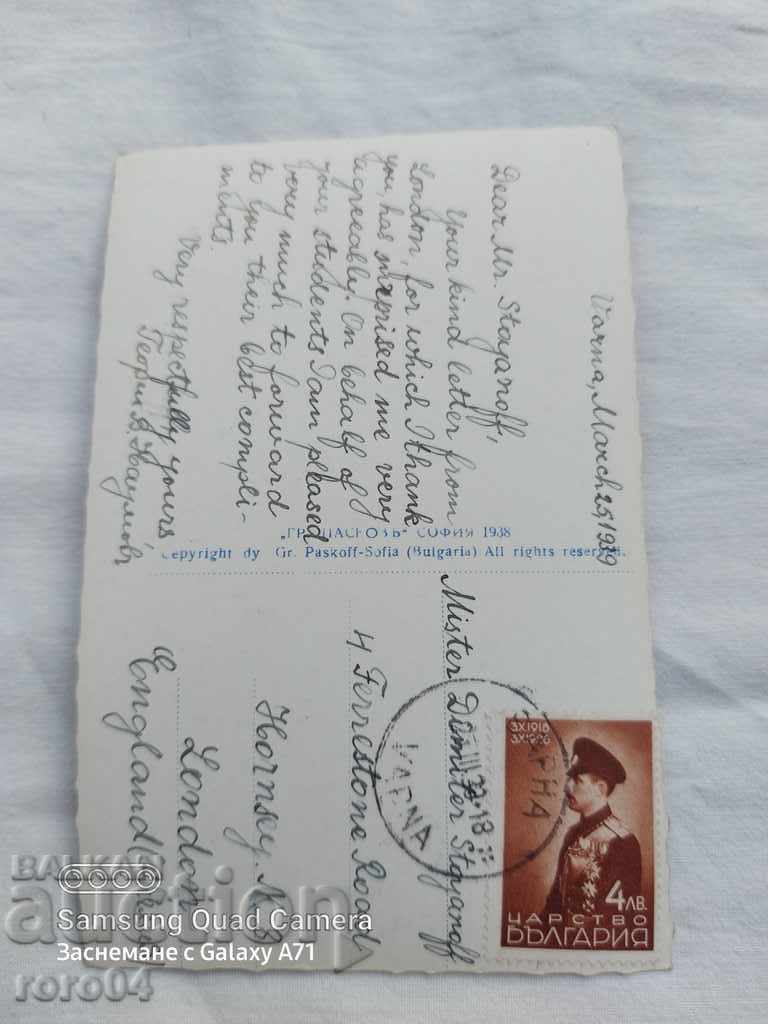 Varna, March 25, 1939
Dear Mr. Stoyanoff,
Your kind letter from
London, for which I thank
you, has surprised me very
agreeably. On behalf of
your students I am pleased
very much to forward
to you their best compli-
ments.
Very respectfully yours
Георги В. Наумовъ
СОФИЯ 1938
Copyright dy Gr. Paskoff-Sofia (Bulgaria) All rights reserved.
Mister Dimiter Stoyanoff
4 Ferrestone Road
Hornsey. N. 8
London
England
ВАРНА
VARNA
III 39-18
3X1918
4ЛВ.
ЦАРСТВО
БЪЛГАРИЯ
BALKAN
auction
Samsung Quad Camera
Заснемане с Galaxy A71
roro04